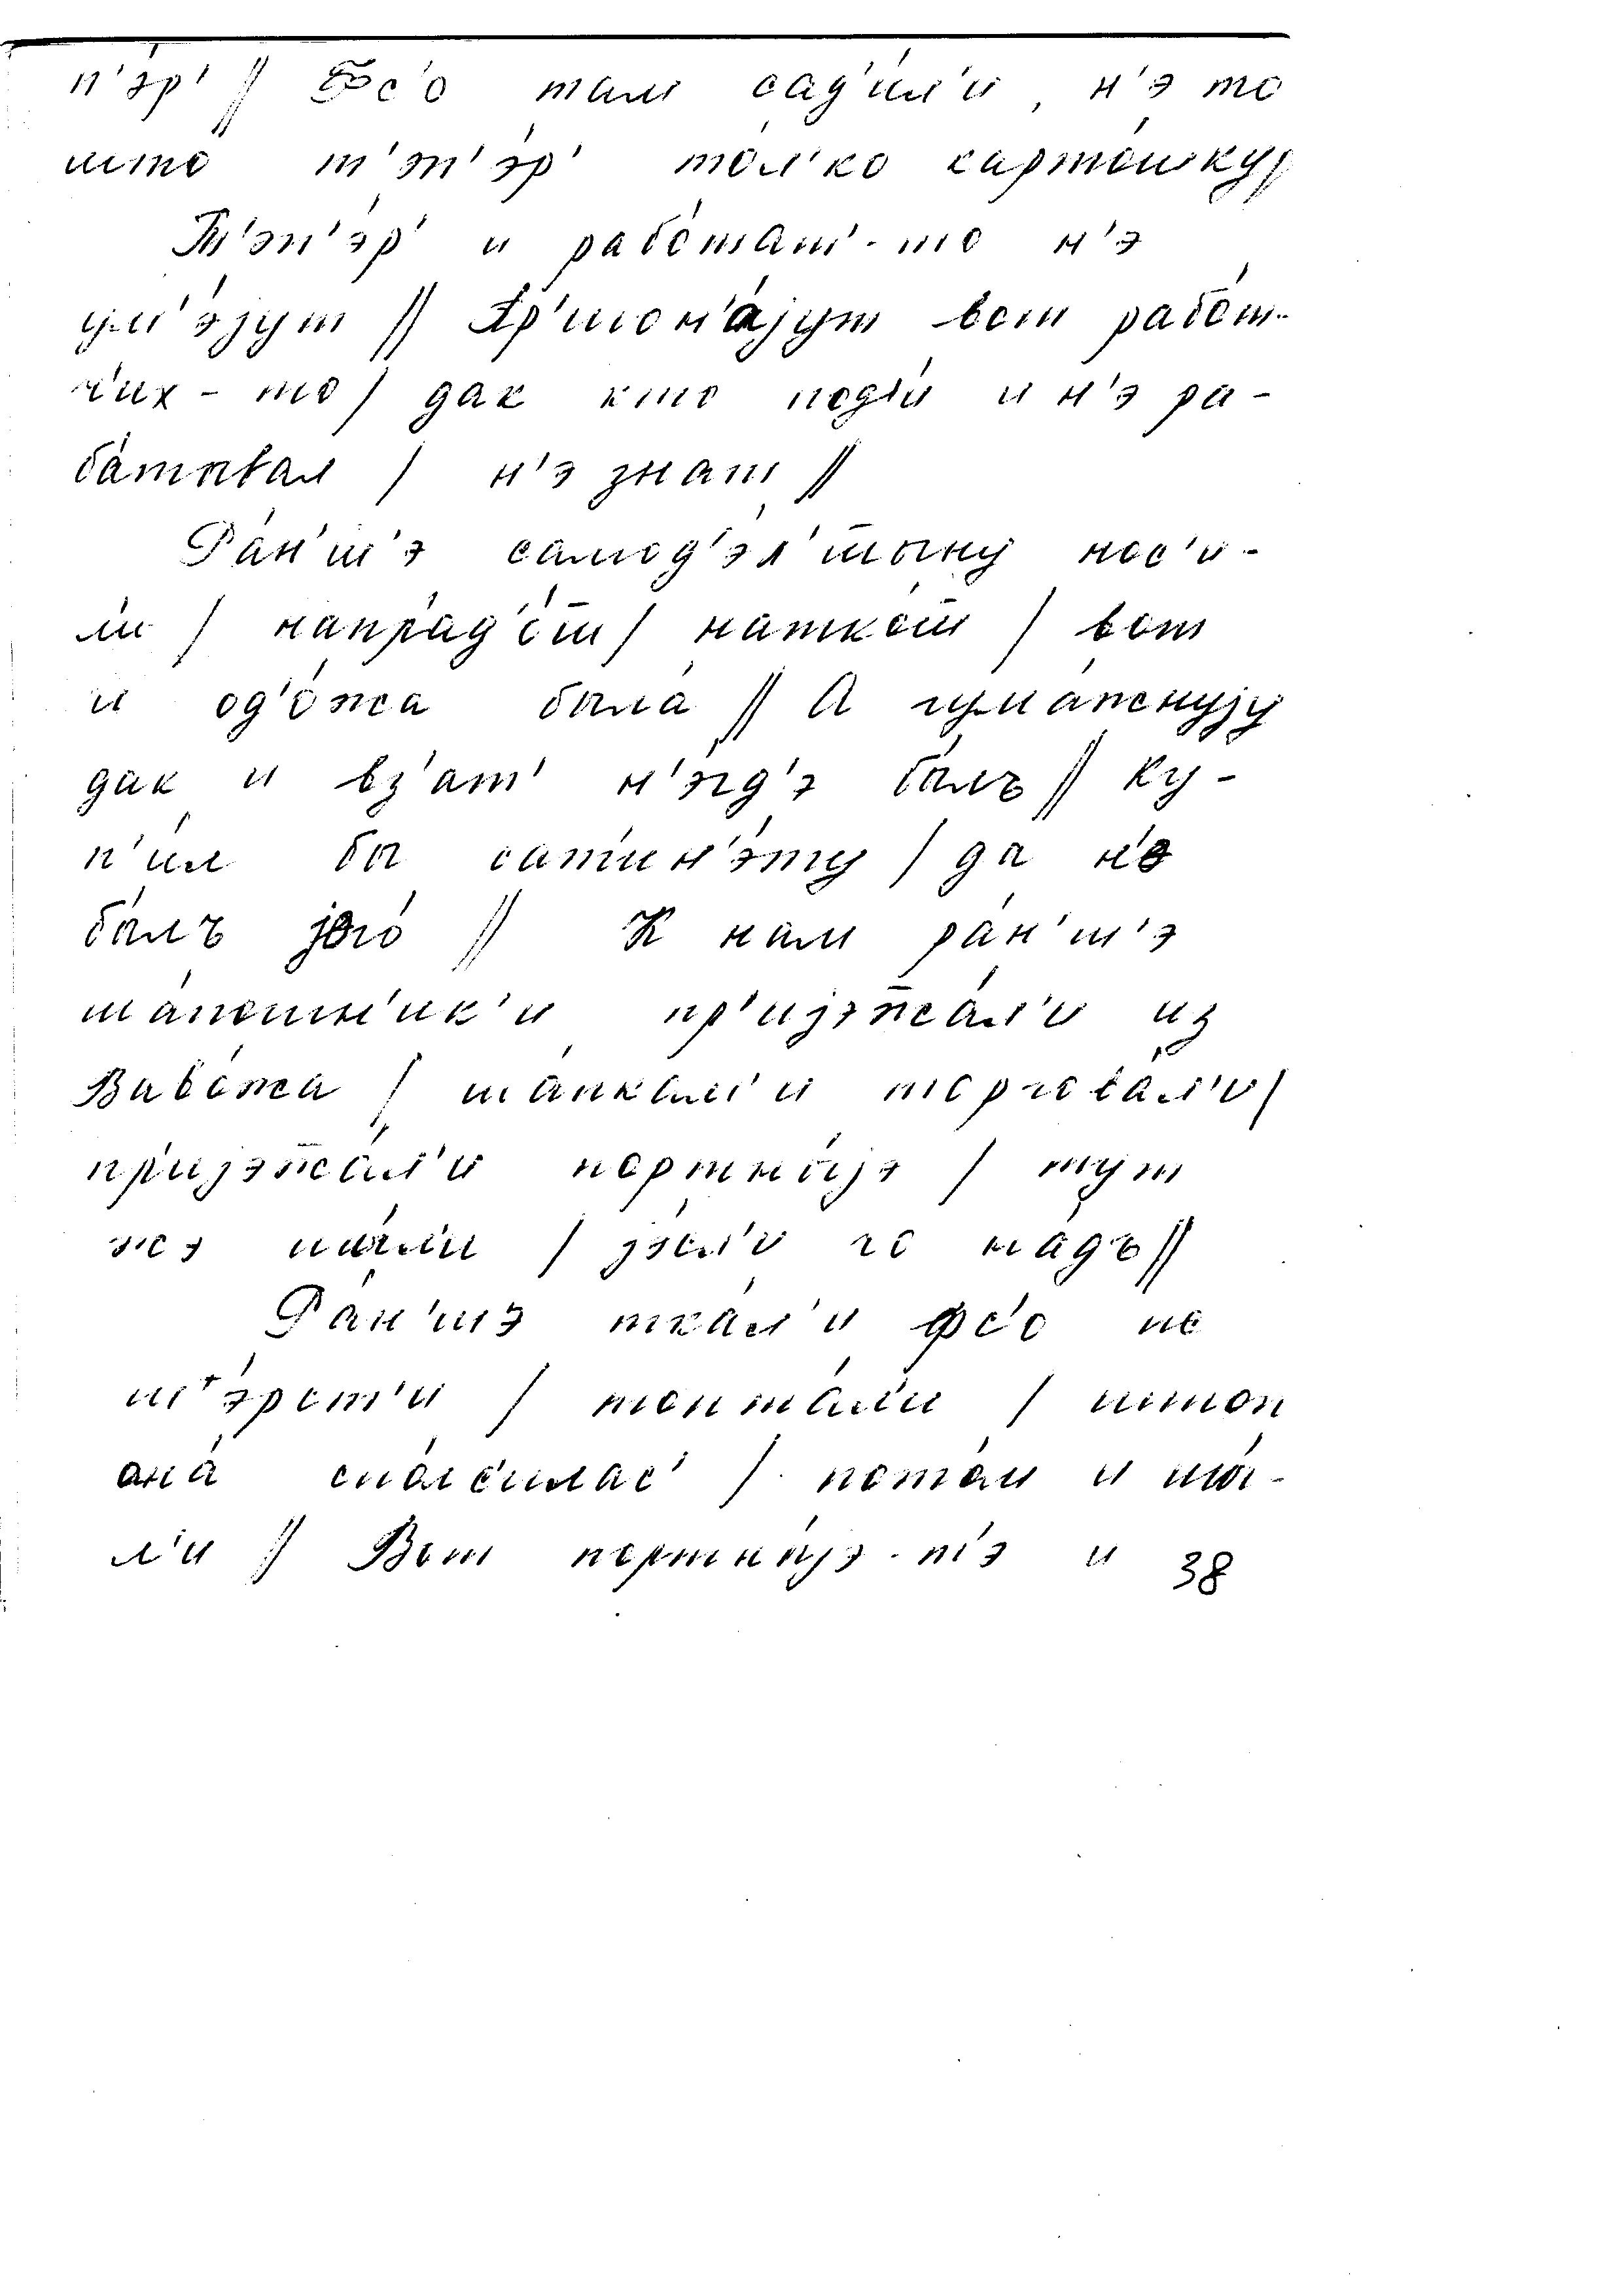 п'э́р' // Фс'о там сад'и́л'и, н'э то
што т'эп'э́р' то́л'ко картошку //
Т'эп'э́р' и рабо́тат'-то н'э
ум'э́јут // Пр'игон'а́јут вот рабо́т-
ч'их-то / дак кто подй и н'э ра-
ба́тывал / н'э знат //
Ра́н'ш'э самод'э́л'шыну нос'и́-
ли / напр'ад'о́ш / натко́ш / вот
и од'о́жа была́ // А гума́жнују
дак и вз'ат' н'э́гд'э было // ку-
п'и́л бы сатин'э́ту / да н'э
было јэго́ // К нам ра́н'ш'э
ша́пошн'ик'и пр'ијэжжа́л'и из
Вавожа / ша́пкам'и торгова́л'и /
пр'ијэжжа́л'и портны́јэ / тут
жэ шы́л'и / јэ́сл'и чо на́дъ //
Ра́н'шэ тка́л'и фс'о из
ш'э́рст'и / топта́л'и / штоп
она́ сва́л'илас' / пото́м и шы́-
л'и // Вот портны́јэ-т'э и 38